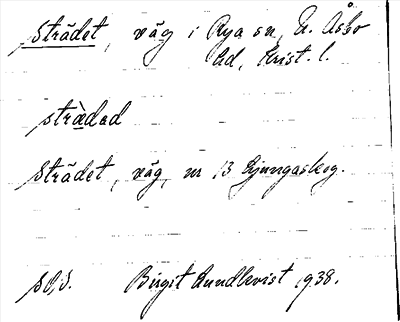 Strädet, väg i Rya sn, N. Åsbo
hd, Krist. l.
strädad
Strädet, väg, nr 13 Ljungaskog.
Sd,S. Birgit Lundkvist 1938.